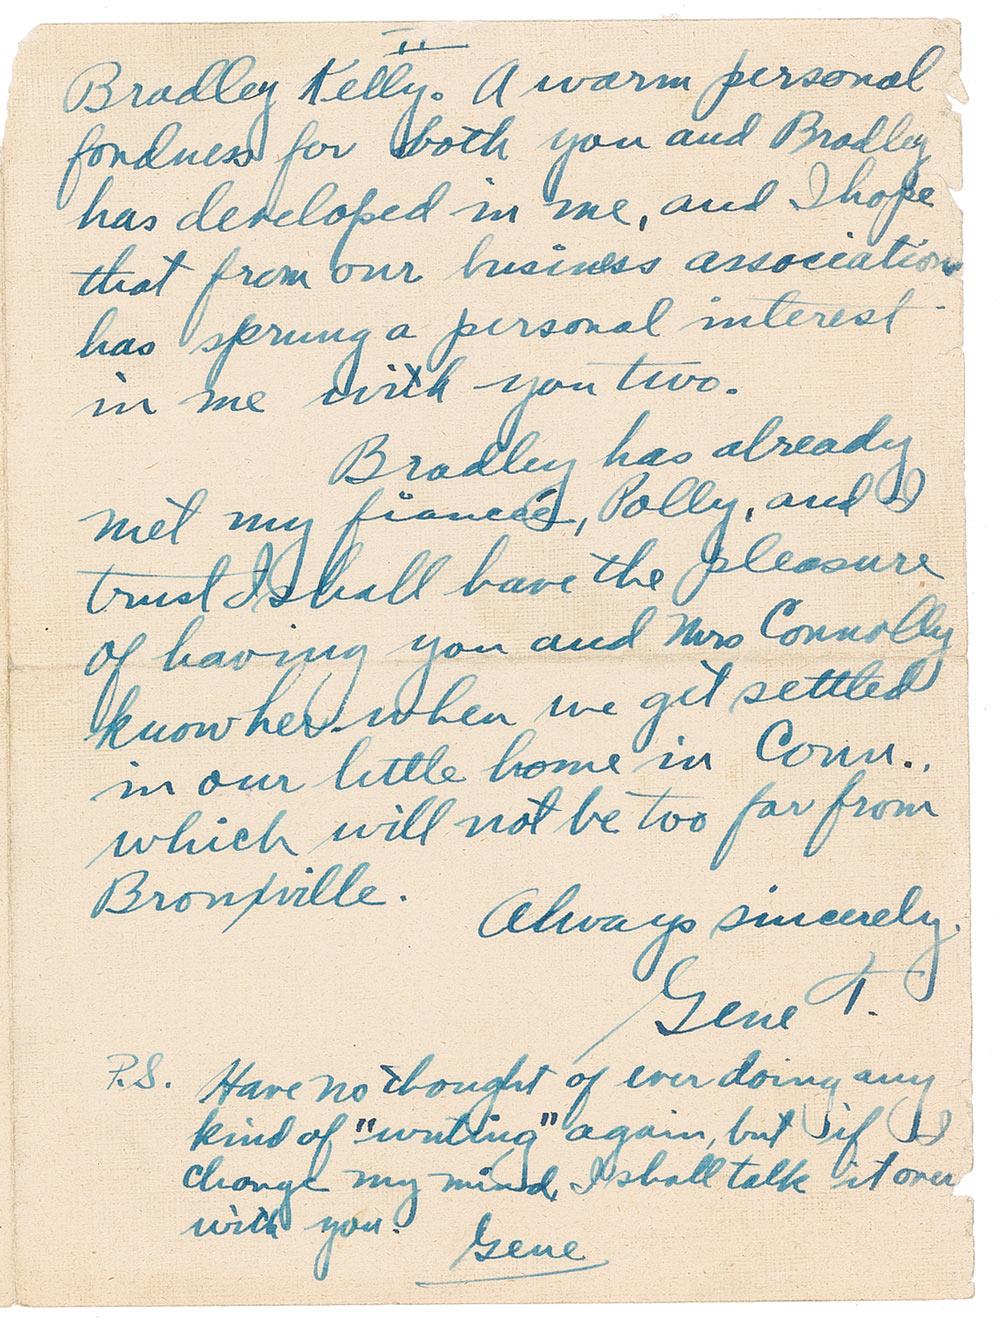 II
Bradley Kelly. A warm personal
fondness for both you and Bradley
has developed in me, and I hope
that from our business association
has sprung a personal interest
in me with you two.
Bradley has already
met my fiancée, Polly, and I
trust I shall have the pleasure
of having you and Mrs Connolly
know her when we get settled
in our little home in Conn.,
which will not be too far from
Bronxville.
Always sincerely.
Gene T.
P.S. Have no thought of ever doing any
kind of "writing" again, but if I
change my mind, I shall talk it over
with you.
Gene